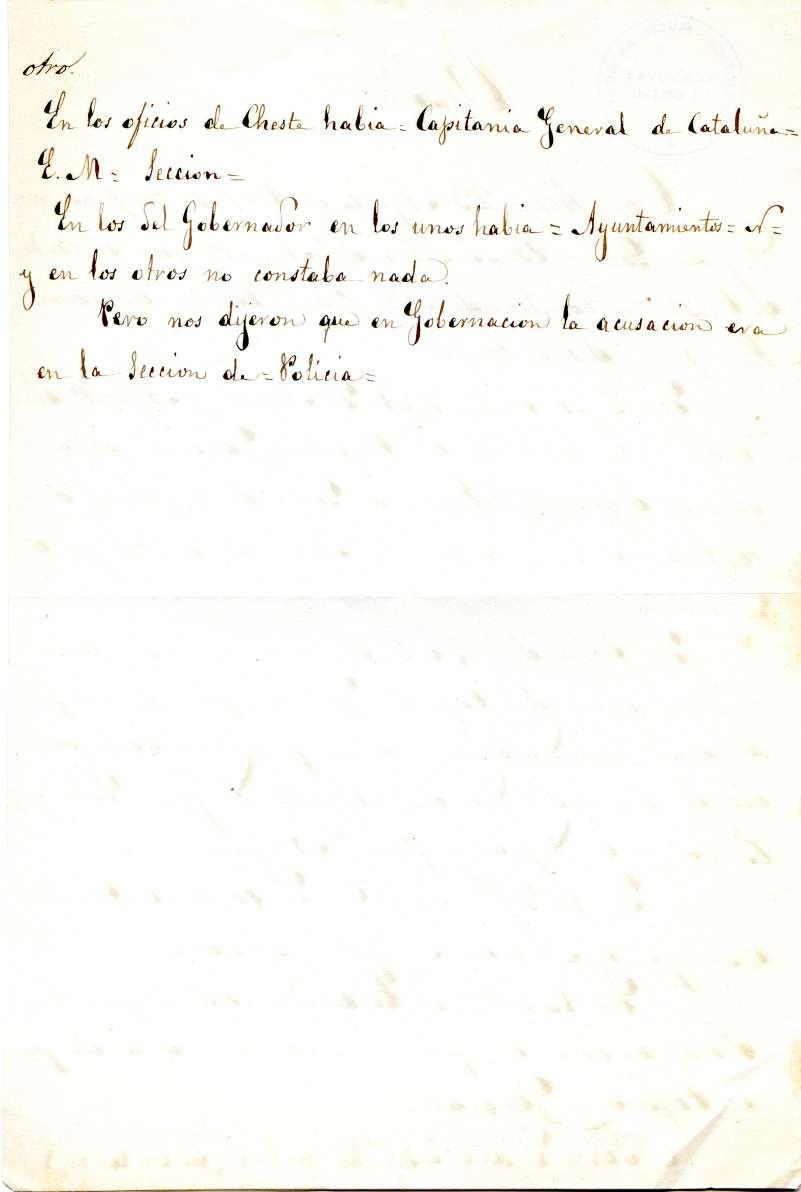 otro.
En los oficios de Cheste habia = Capitania General de Cataluña =
E. M = Seccion =
En los del Gobernador en los unos habia = Ayuntamientos = N =
y en los otros no constaba nada.
Pero nos dijeron que en Gobernacion la acusacion era
en la Seccion de = Policia =